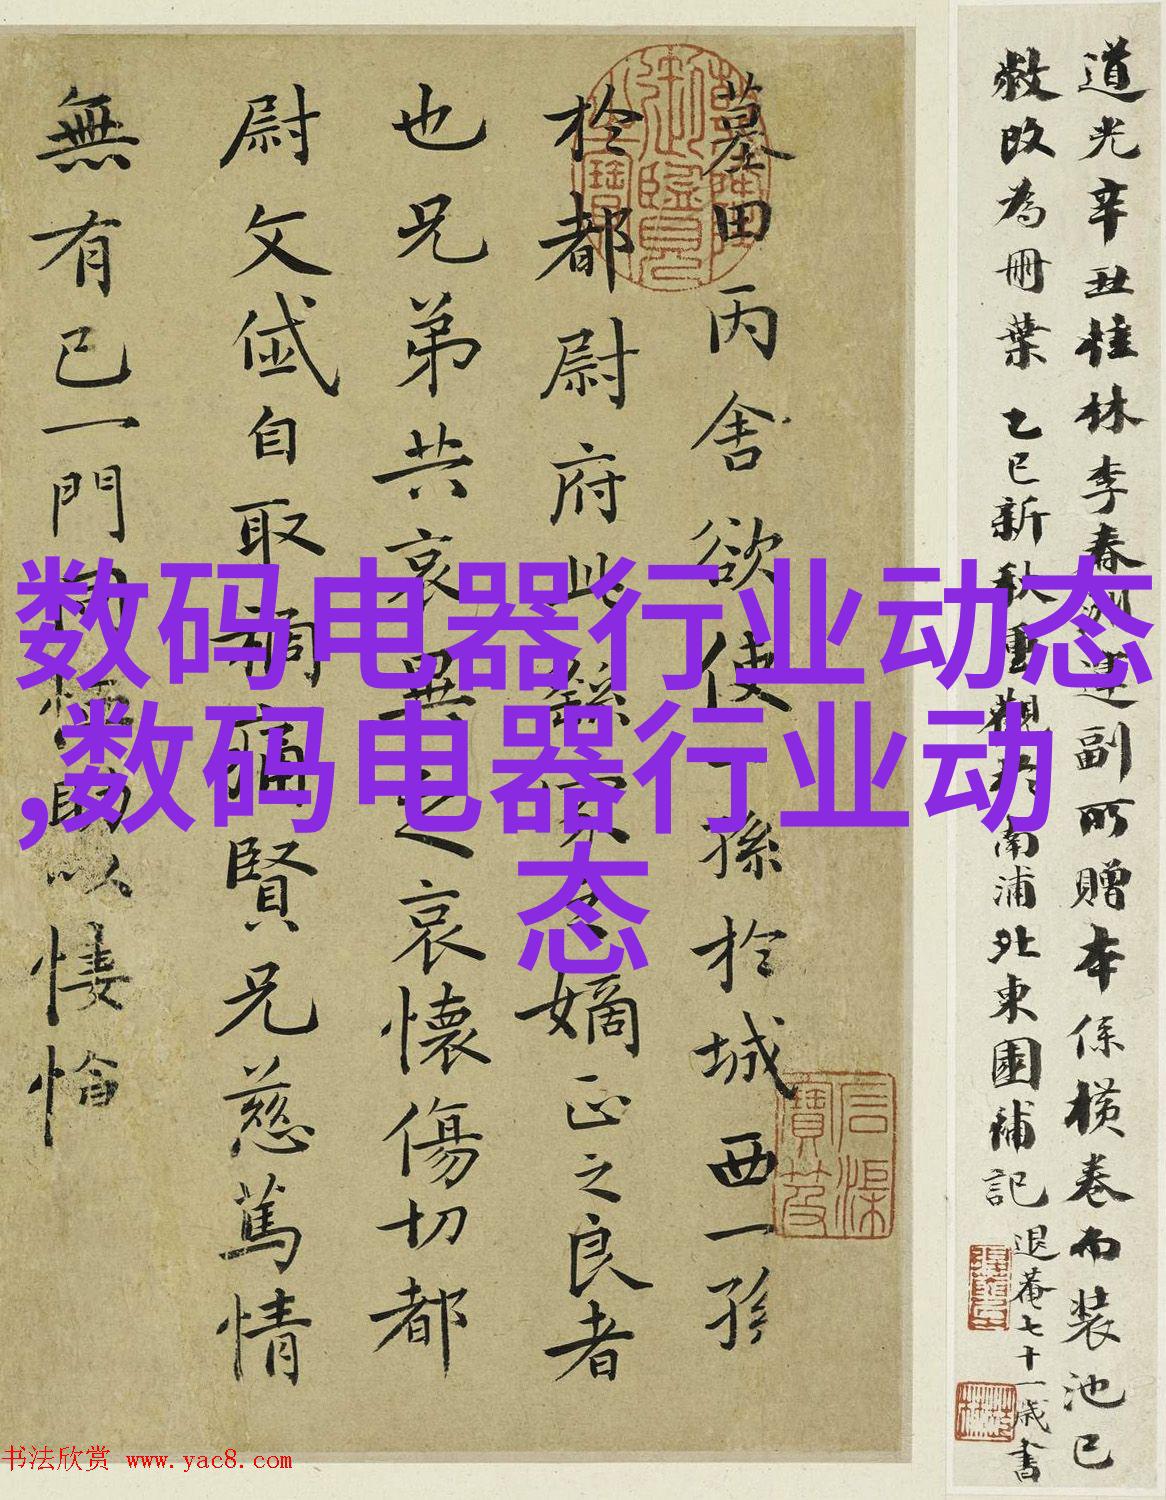 道光辛丑桂林李春
副所贈本係橫卷而装池已
敝改為冊葉乙巳新秋重觀於南浦北東園補記
退菴七十一歲書
墓田丙舍欲使一孫於城西一孫
於都尉府此繇家之嫡正之良者
也兄弟共哀異之哀懷傷切都
尉文岱自取禍痛賢兄慈篤情
無有已一門同恤助以悽愴
數码电器行业动态
,数码电器行业动
态
御覽
书法欣赏 www.yac8.com